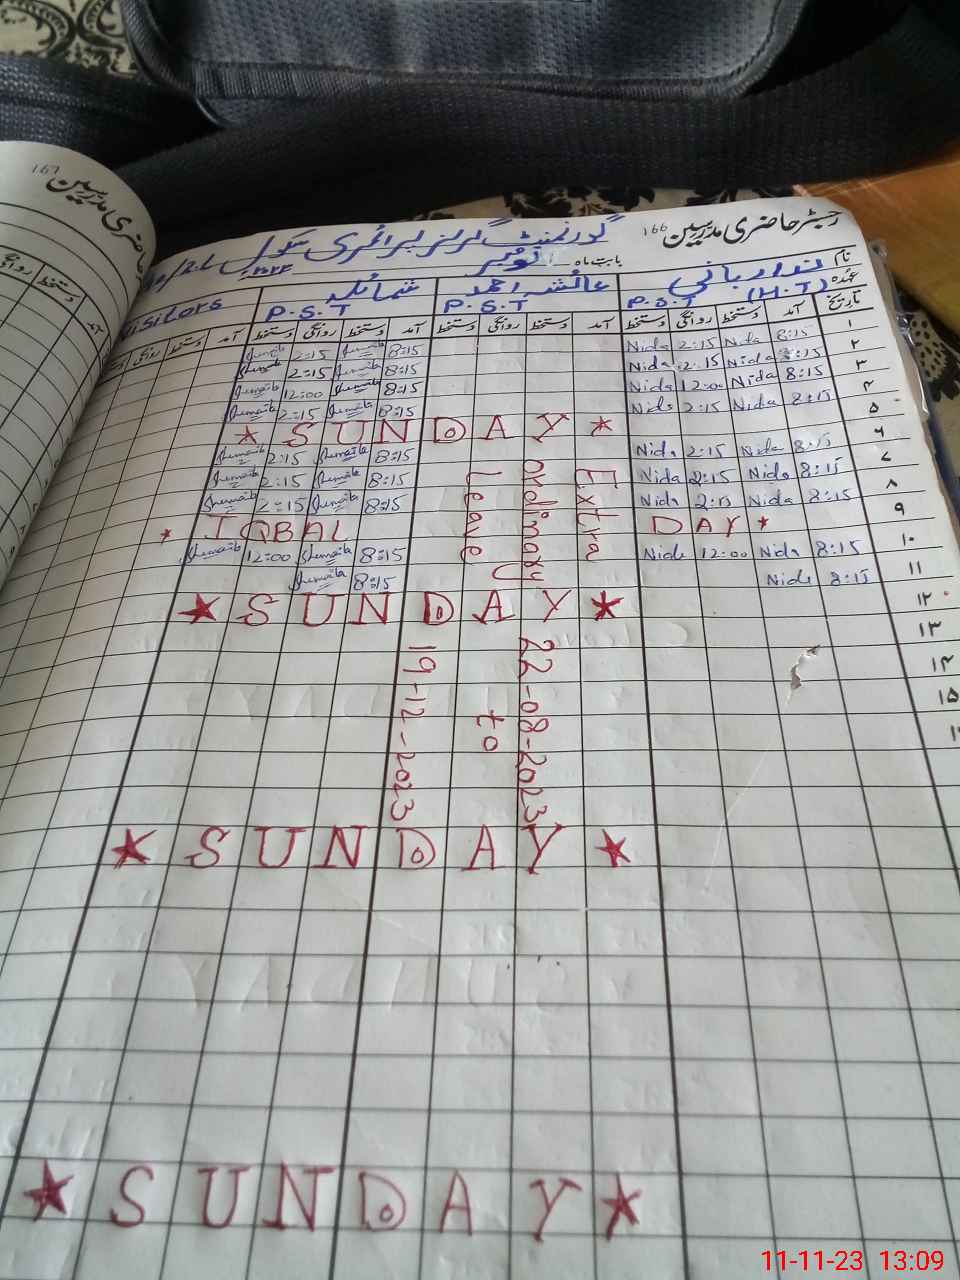 167
166 رجسٹر حاضری مدرسین
گورنمنٹ گرلز پرائمری سکول
بابت ماہ نومبر
نام
عہدہ
ندا ربانی
عائشہ احمد
شمائلہ
P.S.T (H.T)
P.S.T
P.S.T
Visitors
تاریخ آمد دستخط روانگی دستخط آمد دستخط روانگی دستخط آمد دستخط روانگی دستخط آمد دستخط روانگی
۱ 8:15 Nida 2:15 Nida 8:15 2:15
۲ 8:15 Nida 2:15 Nida 8:15 2:15
۳ 8:15 Nida 12:00 Nida 8:15 12:00
۴ 8:15 Nida 2:15 Nida 8:15 2:15
۵ * SUNDAY *
۶ 8:15 Nida 2:15 Nida 8:15 2:15
۷ 8:15 Nida 2:15 Nida 8:15 2:15
۸ 8:15 Nida 2:15 Nida 8:15 2:15
۹ * IQBAL DAY *
۱۰ 8:15 Nida 12:00 Nida 8:15 12:00
۱۱ 8:15 Nida 8:15
۱۲ * SUNDAY *
۱۳
۱۴
۱۵
Extra
ordinary
Leave
22-08-2023
to
19-12-2023
* SUNDAY *
* SUNDAY *
11-11-23 13:09